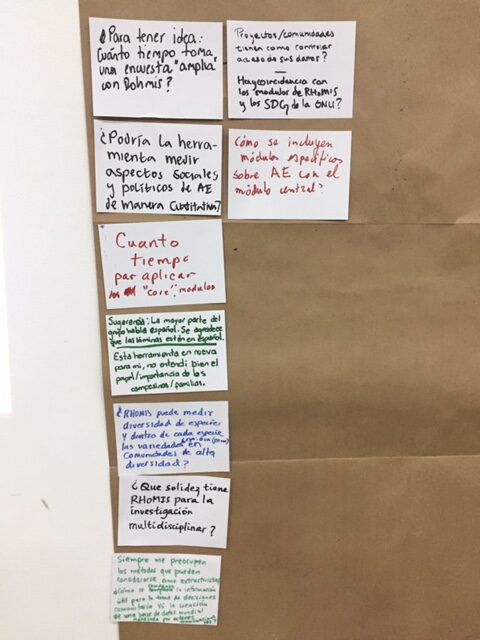 ¿Para tener idea:
Cuánto tiempo toma
una encuesta "amplia"
con Rohmis?
Proyectos/comunidades
tienen como controlar
acceso de sus datos?
Hay coincidencia con
los modulos de RHoMIS
y los SDG de la ONU?
¿Podría la herra-
mienta medir
aspectos sociales
y políticos de AE
de manera cuantitativa?
Cómo se incluyen
módulos específicos
sobre AE con el
módulo central?
Cuanto
tiempo
par aplicar
"core" modulos
Sugerencia: La mayor parte del
grupo habla español. Se agradece
que las láminas estén en español.
Esta herramienta en nueva
para mi, no entendi bien el
papel/importancia de los
campesinos/familias.
¿RHOMIS puede medir
diversidad de especie
y dentro de cada especie
las variedades en
Comunidades de alta
diversidad?
¿Que solidez tiene
RHoMIS para la
investigación
multidisciplinar?
Siempre me preocupen
los métodos que pueden
considerarse como extractivistas
¿Cómo se la información
útil para la toma de decisiones
comunitaria vs la creación
de una base de datos mundial